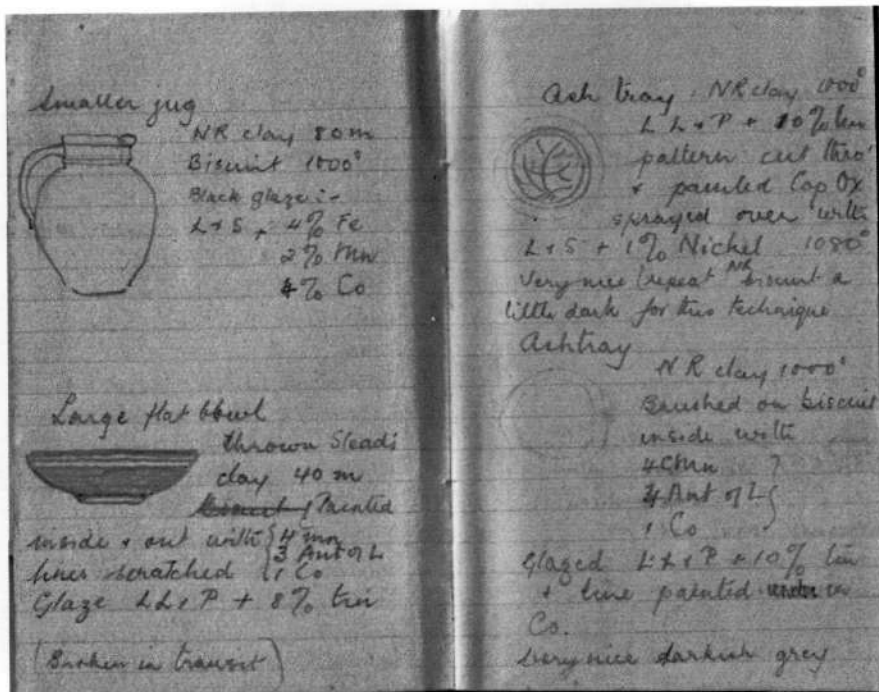 Smaller jug
NR clay 80 m
Biscuit 1000°
Black glaze :-
L + S + 4% Fe
2% Mn
4% Co
Large flat bbwl
thrown Slead's
clay 40 m
Biscuit Painted
inside + out with 4 mn
3 Ant of L
lines scratched 1 Co
Glaze LL + P + 8% tin
(Broken in transit)
Ash tray . NR clay 1000°
L L + P + 10% tin
pattern cut thro'
+ painted Cop Ox
sprayed over with
L + S + 1% Nickel 1080°
Very nice (repeat NR biscuit a
little dark for this technique
Ashtray
NR clay 1000°
Brushed on biscuit
inside with
Ant of L
1 Co
Glazed L L + P + 10% tin
+ line painted in
Co.
Very nice darkish grey